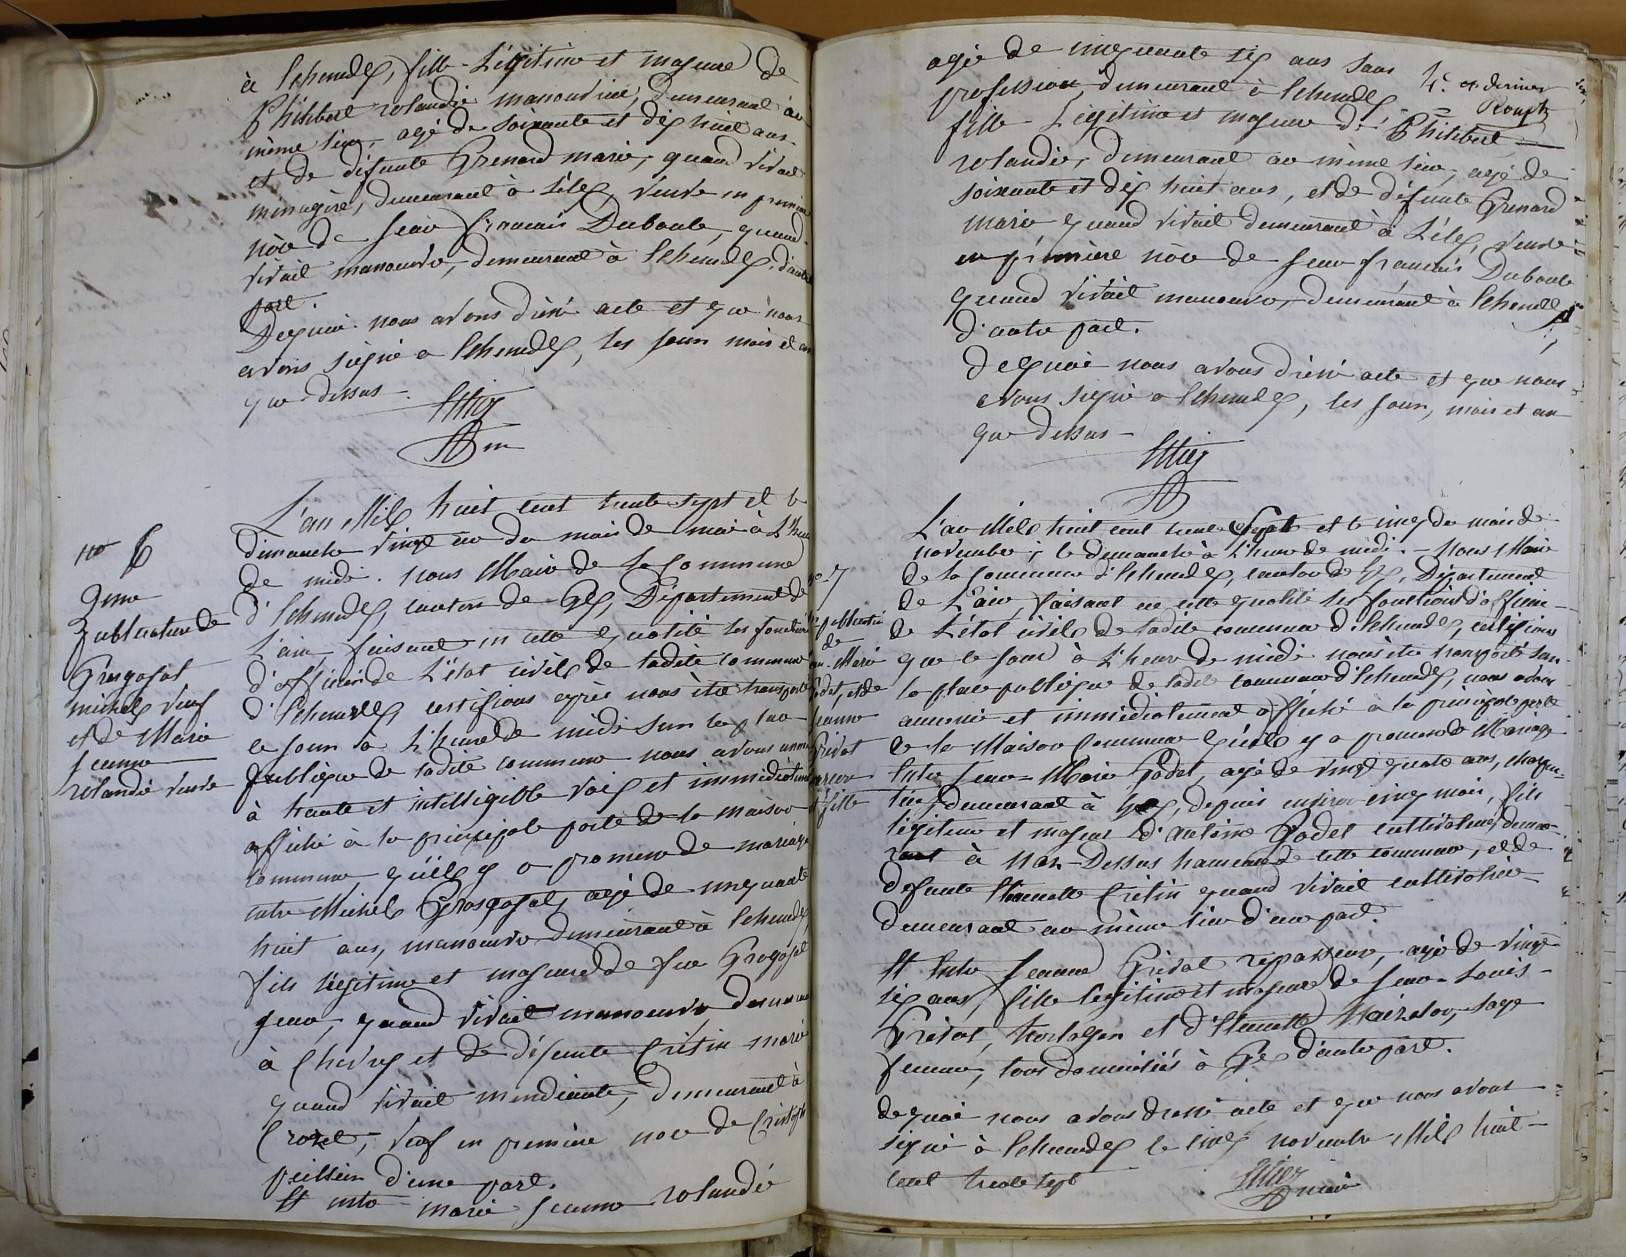 à Echenevex, fille Légitime et majeure de
Philibert rolandié manouvrier, demeurant au
même lieu, agé de soixante et dix huit ans
et de défunte Grenard marie, quand vivait
ménagère, demeurant à veuve en premier
nôce de Jean français Duboule, quand
vivait manouvre, demeurant à Echenevex, d'autre
part.
Dequoi nous avons dressé acte et que nous
avons signé a Echenevex, les jour mois et an
que dessus

L'an Mil huit cent trente sept et le
dimanche vingt un du mois de mai à L'heure
de midi. nous Maire de la Commune
d'Echenevex, canton de Gex, Département de
L'ain faisant en cette qualité les fonctions
d'officier de L'état civil de ladite commune
d'Echenevex, certifions après nous être transporté
ce jour à L'heure de midi sur la place
publique de ladite commune nous avons annoncé
à haute et intelligible voix et immédiatement
affiché à la principale porte de la maison
commune qu'il y a promesse de mariage
entre Michel Grosgojat, agé de cinquante
huit ans, manouvre demeurant à Echenevex,
fils légitime et majeur de feu Grosgojat
jean, quand vivait manouvre demeurant
à Chevry et de défunte Crétin marie
quand vivait mendiante, demeurant à
Crozet, veuf en première noce de
d'une part.
Et entre marie jeanne rolandié

no 6
2eme
publication de
Grosgojat
michel veuf
et de Marie
jeanne
rolandié veuve

agé de cinquante six ans sans
profession, demeurant à Echenevex,
fille Légitime et majeure de Philibert
rolandié, demeurant au même lieu, agé de
soixante et dix huit ans, et de défunte Grenard
marie quand vivait demeurant à veuve
en première nôce de jean français Duboule
quand vivait manouvre, demeurant à Echenevex
d'autre part.
dequoi nous avons dressé acte et que nous
avons signé a Echenevex, les jour, mois et an
que dessus

4e et dernier

L'an Mil huit cent trente Sept et le cinq du mois de
novembre, le dimanche à L'heure de midi. Nous Maire
de la Commune d'Echenevex, canton de Gex, Département
de L'ain, faisant en cette qualité les fonctions d'officier
de L'état civil de ladite commune d'Echenevex, certifions
que ce jour à L'heure de midi nous être transporté sur
la place publique de ladite commune d'Echenevex, nous avons
annoncé et immédiatement affiché à la principale porte
de la Maison Commune qu'il y a promesse de Mariage
Entre Jean-Marie Godet, agé de vingt quatre ans,
demeurant à Gex, depuis environ cinq mois, fils
légitime et majeur d'Antoine Godet cultivateur, demeurant
à Naz-Dessus hameau de cette commune, et de
défunte Crétin quand vivait cultivatrice
demeurant au même lieu d'une part.
Et Entre Jeanne Privat repasseuse, agé de vingt
six ans, fille légitime et majeure de Jean-Louis
Privat, horloger et d' sage
femme, tous domiciliés à Gex d'autre part.
dequoi nous avons dressé acte et que nous avons
signé à Echenevex le cinq novembre Mil huit
cent trente sept